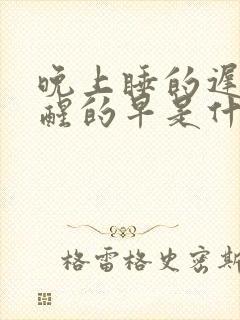 晚上睡的遲
醒的早是什
格雷格史密斯